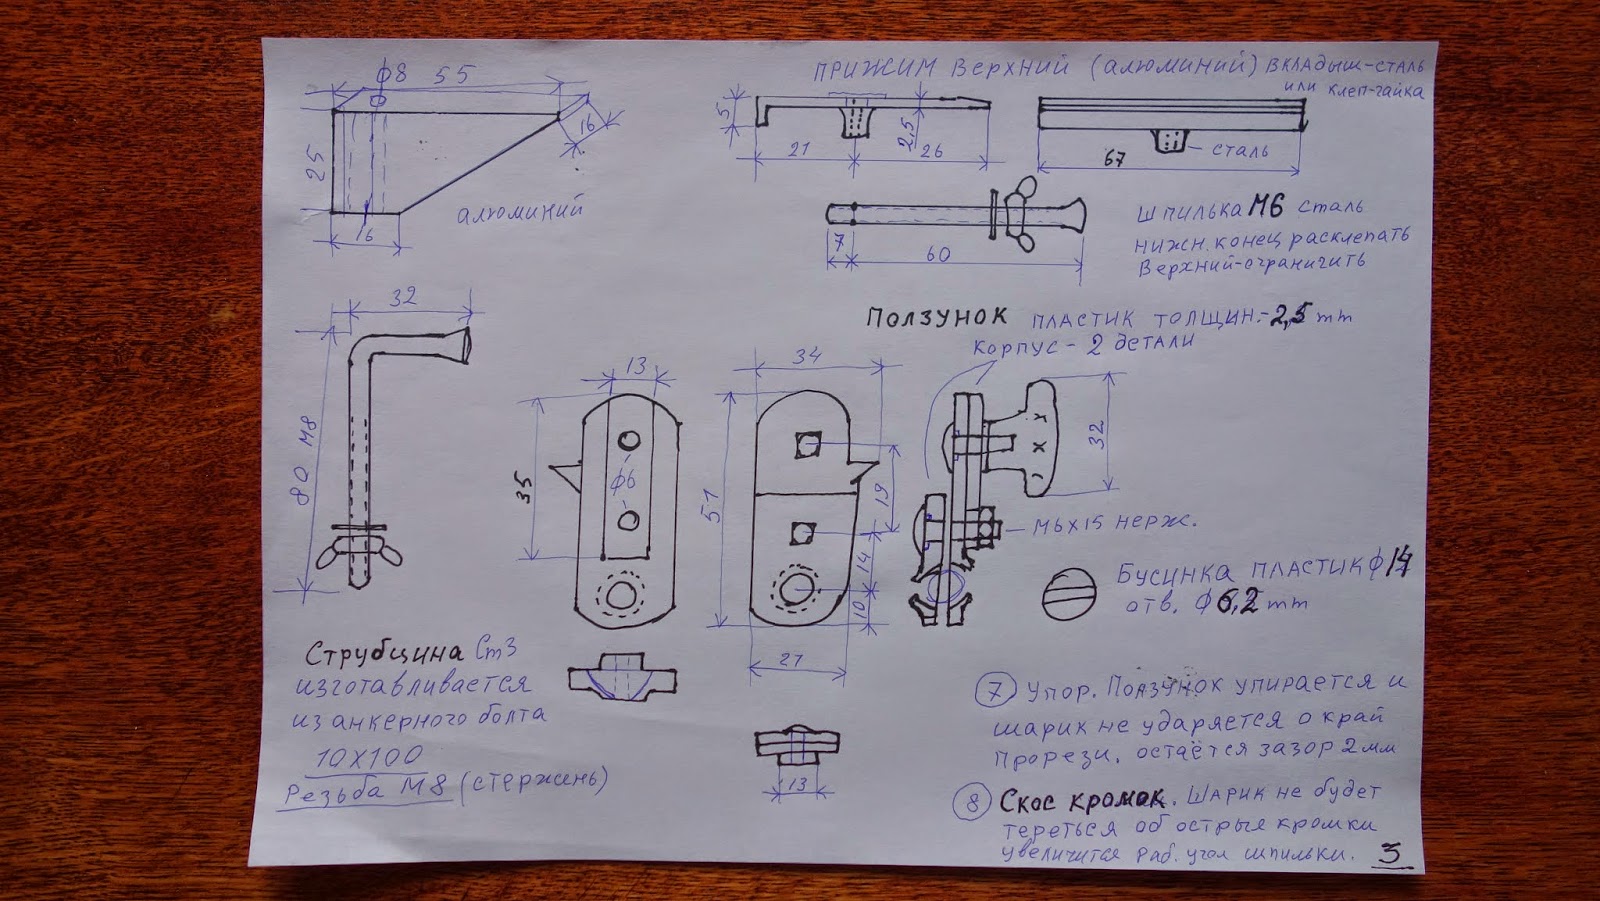 ф8 55
16
25
16
алюминий
ПРИЖИМ Верхний (алюминий) ВКЛАДЫШ-СТАЛЬ
или клеп-гайка
5
21
2,5
26
67
СТАЛЬ
7
60
ШПИЛЬКА М6 СТАЛЬ
НИЖН. КОНЕЦ РАСКЛЕПАТЬ
Верхний-ограничить
32
80 М8
ПОЛЗУНОК ПЛАСТИК ТОЛЩИН.-2,5 mm
Корпус - 2 детали
13
35
ф6
34
51
19
14
10
27
13
32
М6Х15 нерж.
БУСИНКА ПЛАСТИК ф14
отв. ф6,2 mm
Струбцина Ст3
изготавливается
из анкерного болта
10Х100
Резьба М8 (стержень)
7 Упор. Ползунок упирается и
шарик не ударяется о край
прорези. остаётся зазор 2мм
8 Скос кромок. Шарик не будет
тереться об острые кромки
увеличится раб. угол шпильки. 3